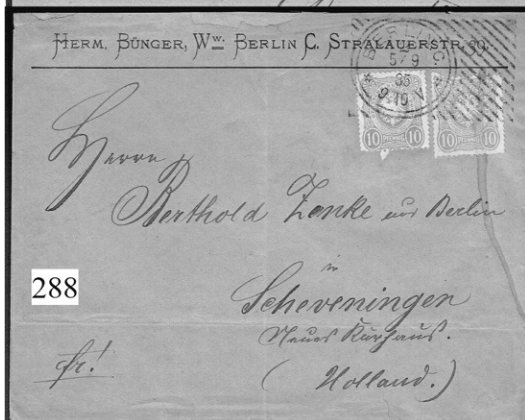 HERM. BÜNGER, Ww. BERLIN C. STRALAUERSTR.
BERLIN, C.
5/9
85
9-10 V
10 10 10 10
Herrn
Berthold Zenke aus Berlin
in
Scheveningen
Neues Kurhaus.
(Holland.)
fr!
288